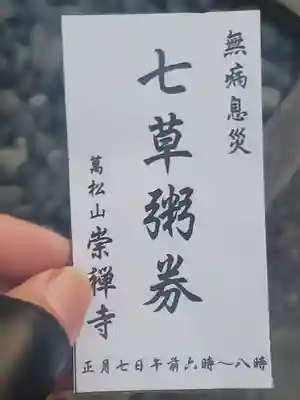 無病息災
七草粥券
萬松山崇禅寺
正月七日午前六時〜八時